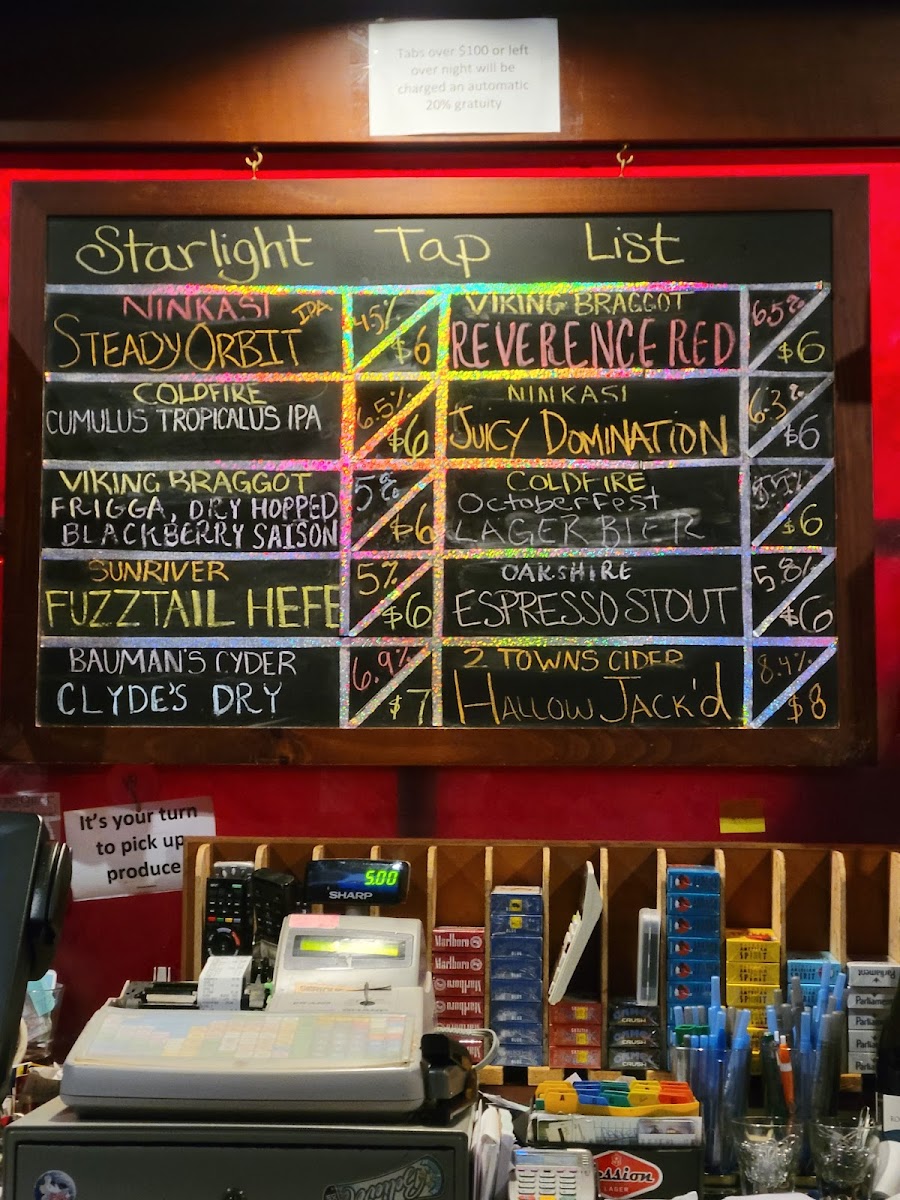 Tabs over $100 or left
over night will be
charged an automatic
20% gratuity
Starlight Tap List
NINKASI
STEADY ORBIT IPA
4.5%
$6
VIKING BRAGGOT
REVERENCE RED
6.5%
$6
COLDFIRE
CUMULUS TROPICALUS IPA
6.5%
$6
NINKASI
JUICY DOMINATION
6.3%
$6
VIKING BRAGGOT
FRIGGA, DRY HOPPED
BLACKBERRY SAISON
5%
$6
COLDFIRE
OctoberFest
LAGER BIER
$6
SUNRIVER
FUZZTAIL HEFE
5%
$6
OAKSHIRE
ESPRESSO STOUT
5.8%
$6
BAUMAN'S CYDER
CLYDE'S DRY
6.9%
$7
2 TOWNS CIDER
HALLOW JACK'd
8.4%
$8
It's your turn
to pick up
produce
5.00
SHARP
Marlboro
Marlboro
Marlboro
Marlboro
CRUSH
CRUSH
Parliament
Parliament
Parliament
Parliament
ssion
LAGER
Believe